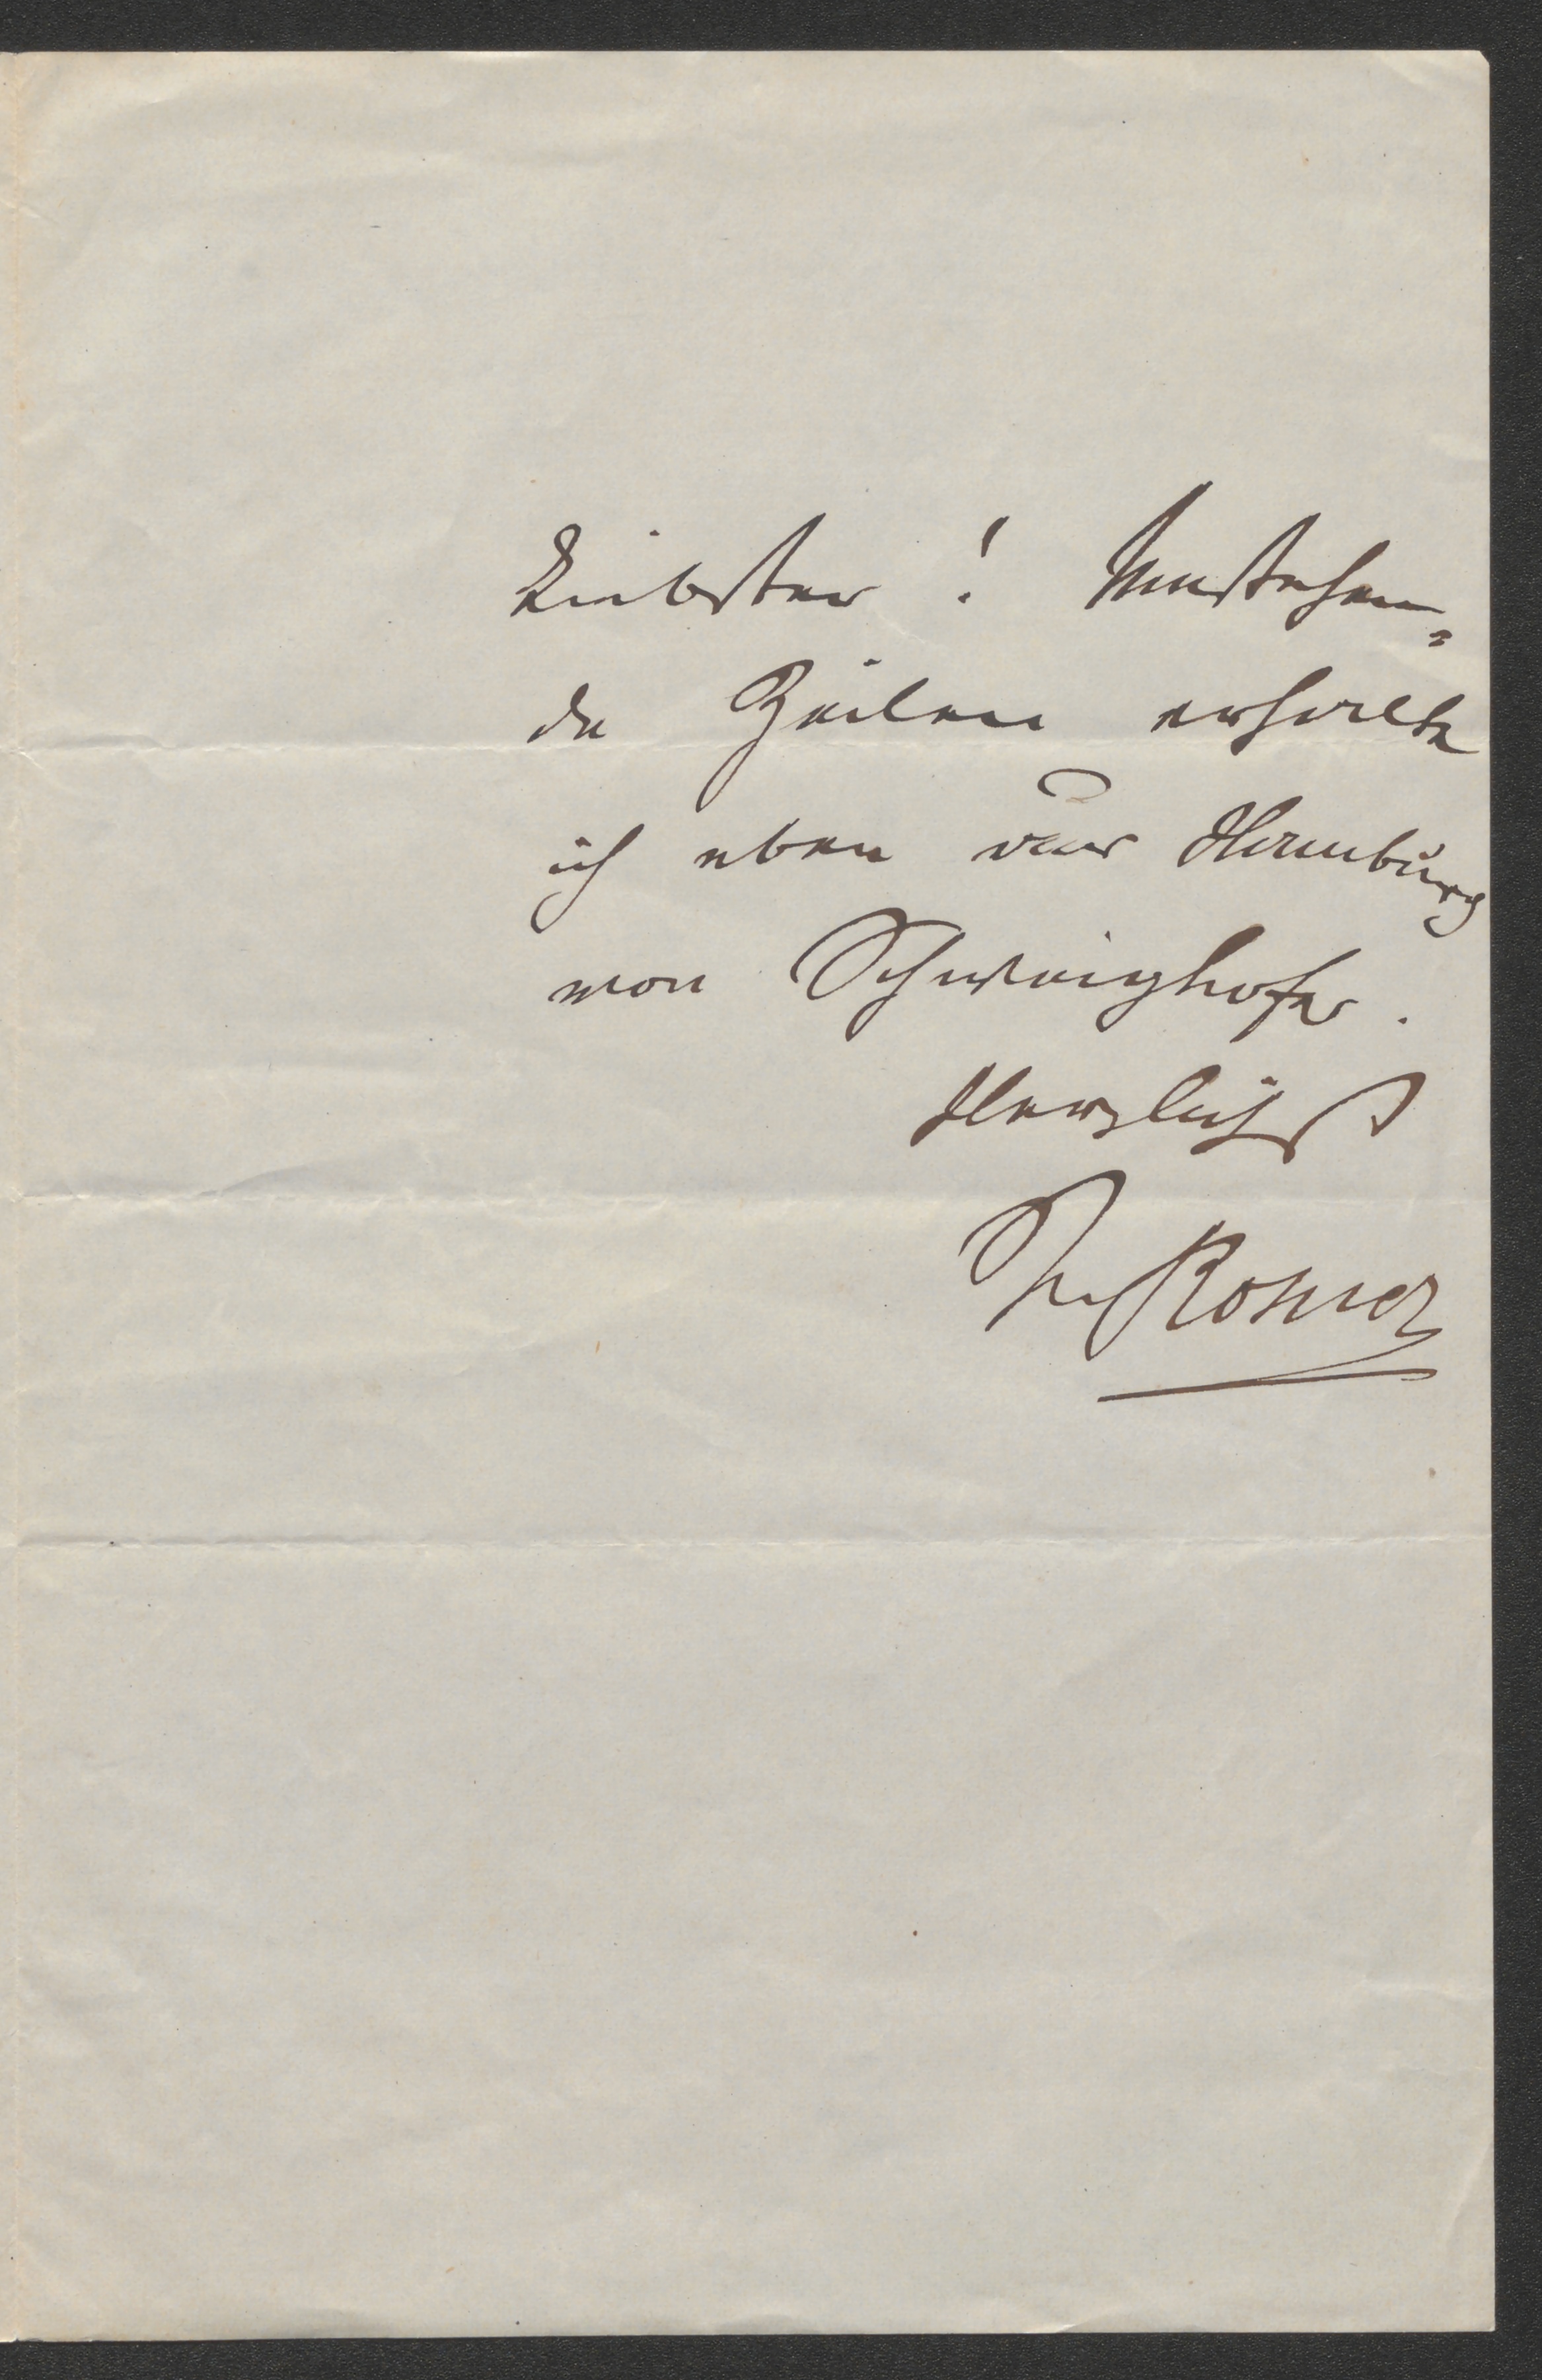 Liebster! Umstehen-
de Zeilen erhielt
ich eben aus Hamburg
von Schweighofer.
Herzlichst
Rosner